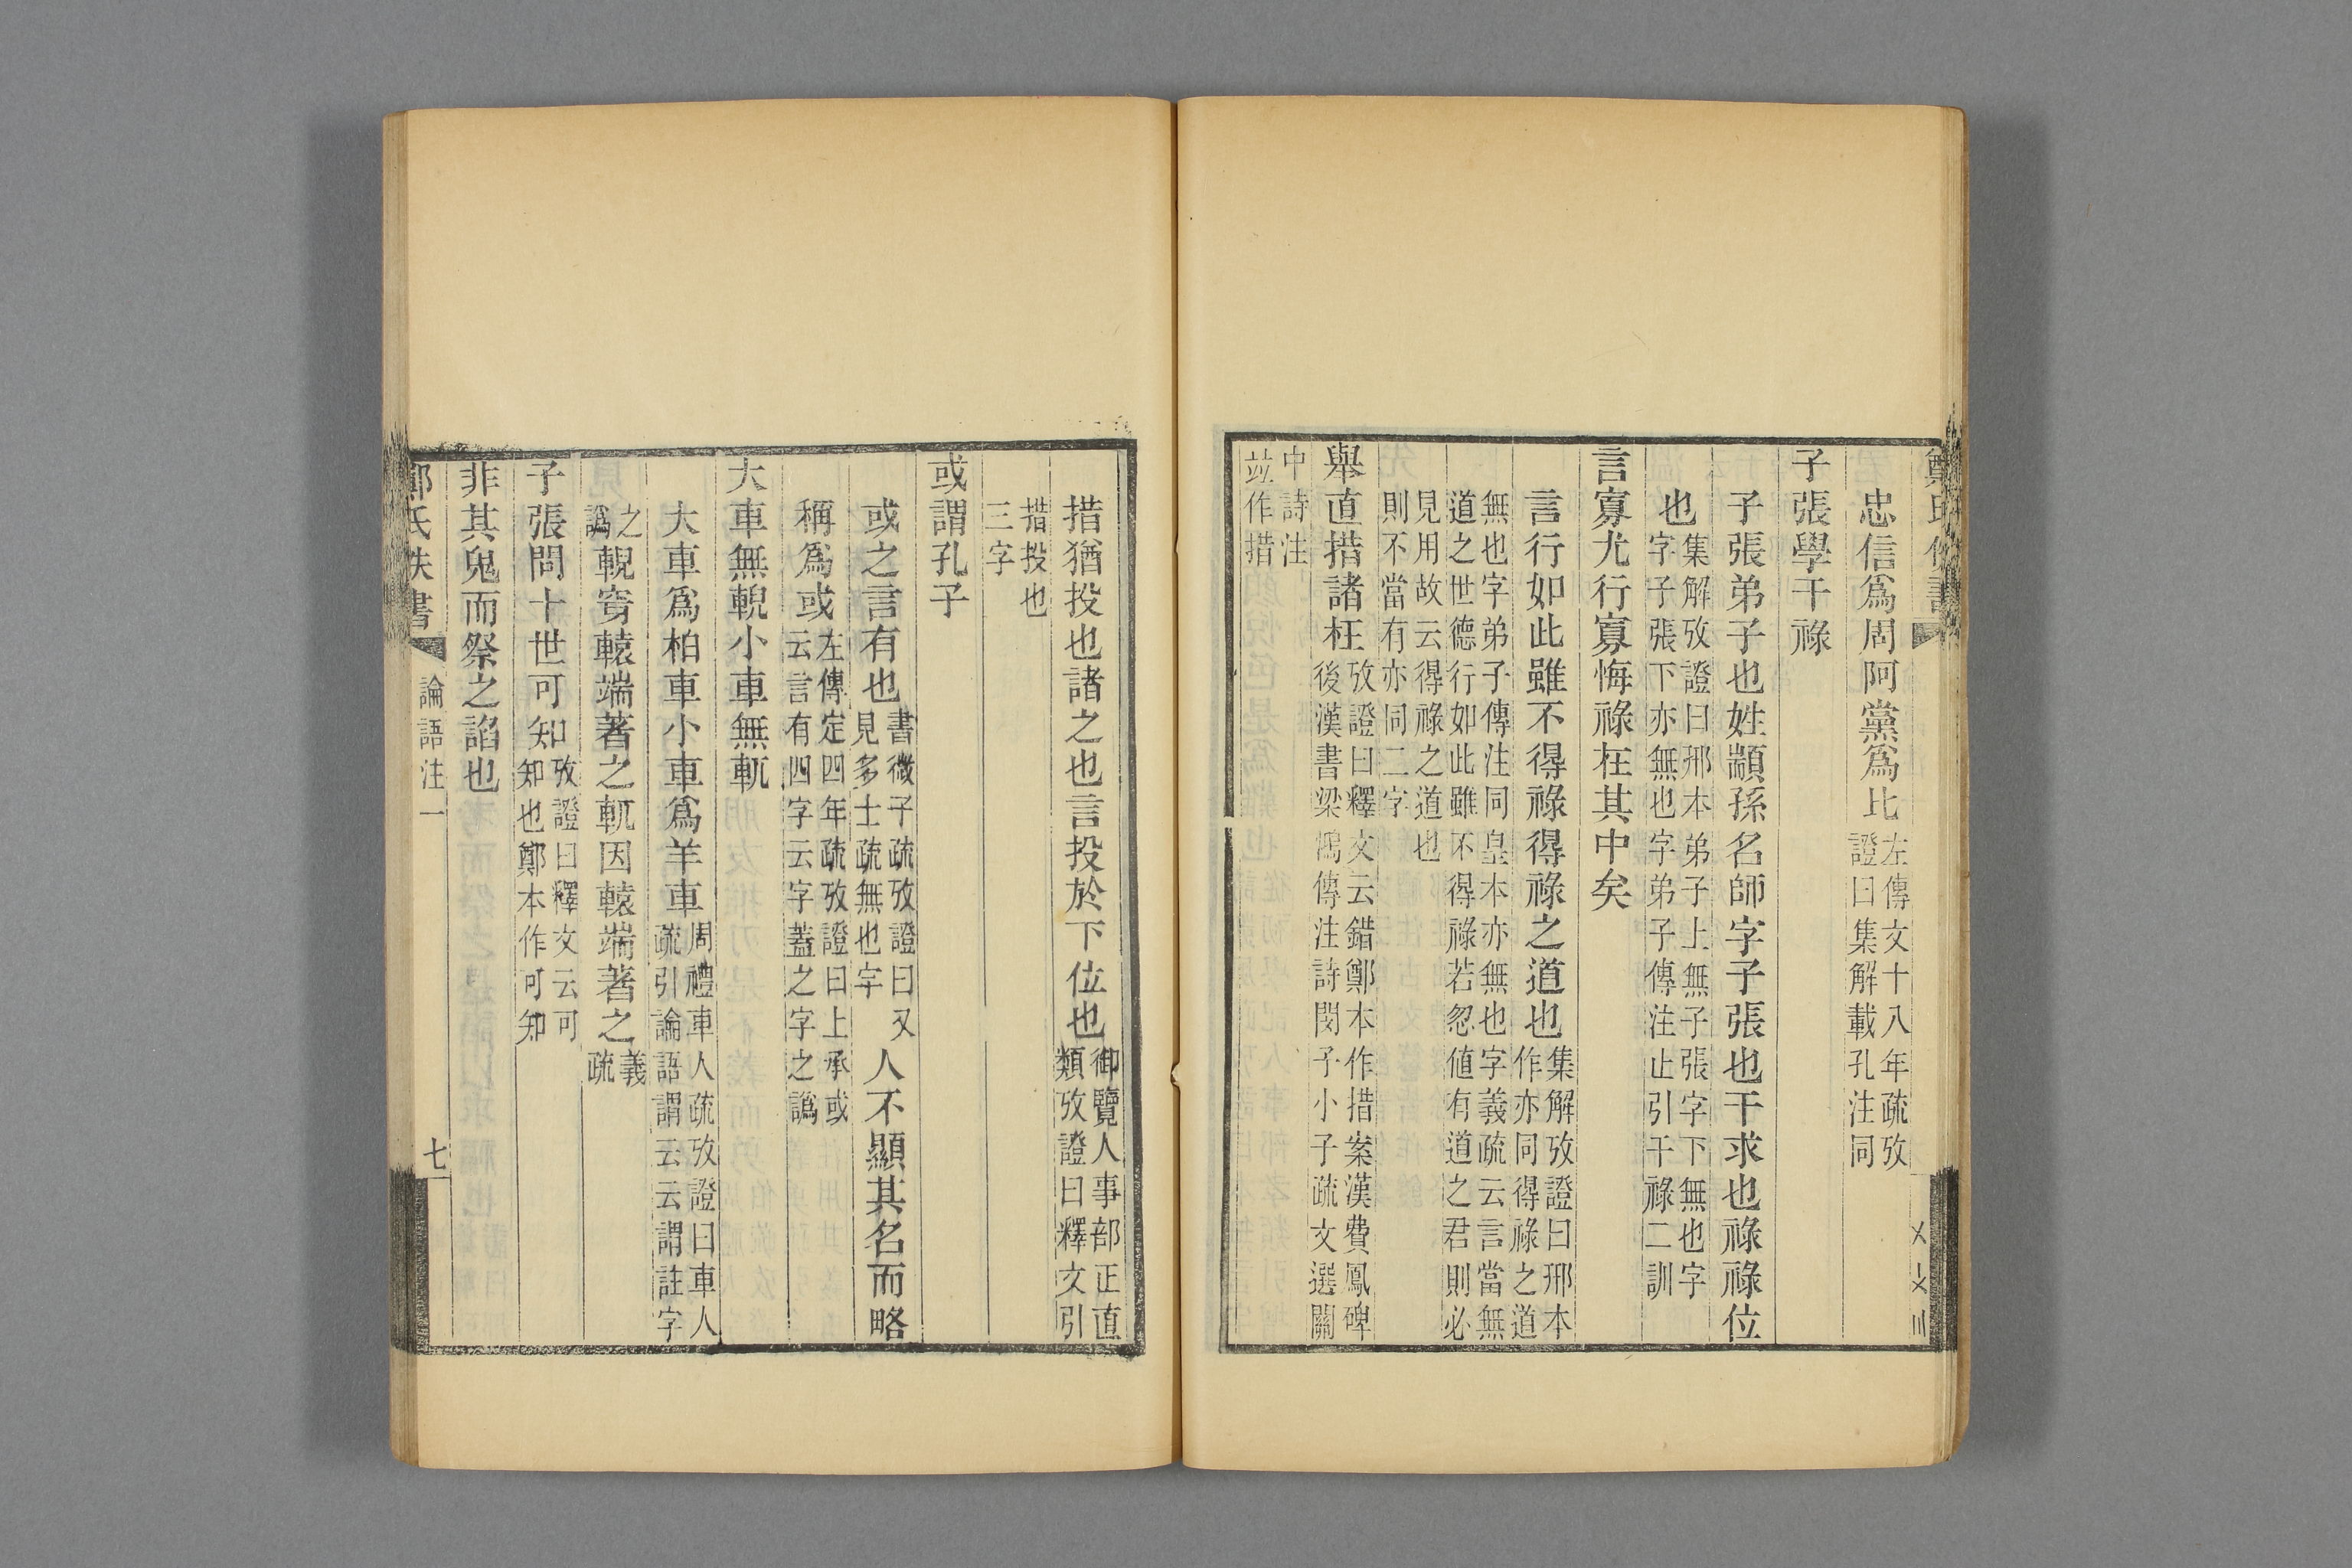 忠信爲周阿黨爲比左傳文十八年疏攷證曰集解載孔注同
子張學干祿
子張弟子也姓顓孫名師字子張也干求也祿祿位
也集解攷證曰邢本弟子上無子張字下無也字字子張下亦無也字弟子傳注止引干祿二訓
言寡尤行寡悔祿在其中矣
言行如此雖不得祿得祿之道也集解攷證曰邢本作亦同得祿之道
無也字弟子傳注同皇本亦無也字義疏云言當無道之世德行如此雖不得祿若忽値有道之君則必
見用故云得祿之道也則不當有亦同二字
舉直措諸枉攷證曰釋文云錯鄭本作措案漢費鳳碑後漢書梁鴻傳注詩閔子小子疏文選關
中詩注竝作措
措猶投也諸之也言投於下位也御覽人事部正直類攷證曰釋文引
措投也三字
或謂孔子
或之言有也書微子疏攷證曰又見多士疏無也字人不顯其名而略
稱爲或左傳定四年疏攷證曰上承或云言有四字云字蓋之字之譌
大車無輗小車無軏
大車爲柏車小車爲羊車周禮車人疏攷證曰車人疏引論語謂云云謂註字
之譌輗穿轅端著之軏因轅端著之義疏
子張問十世可知攷證曰釋文云可知也鄭本作可知
非其鬼而祭之諂也
鄭氏佚書
論語注一
七